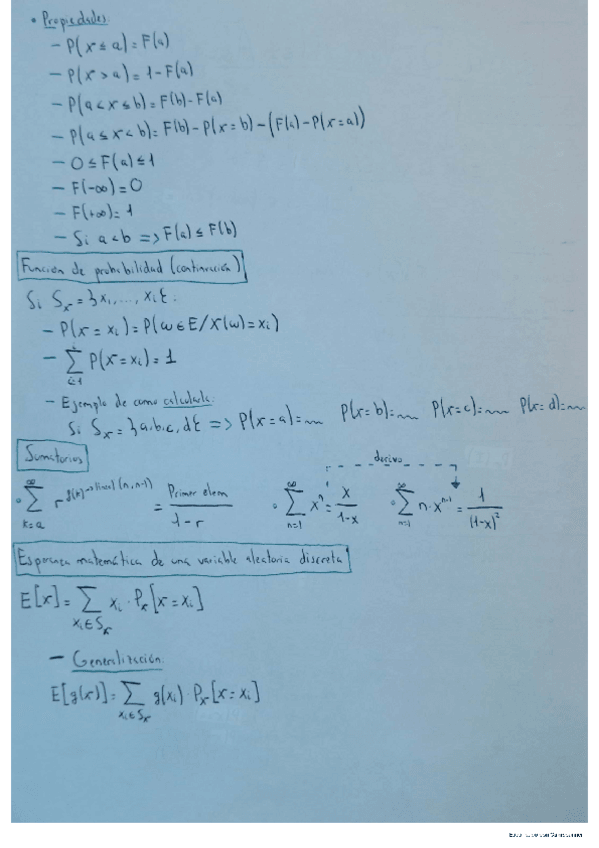 • Propiedades:
– P(X ≤ a) = F(a)
– P(X > a) = 1 - F(a)
– P(a < X ≤ b) = F(b) - F(a)
– P(a ≤ X < b) = F(b) - P(X = b) - (F(a) - P(X = a))
– 0 ≤ F(a) ≤ 1
– F(-∞) = 0
– F(+∞) = 1
– Si a < b => F(a) ≤ F(b)
Función de probabilidad (continuación)
Si Sₓ = {x₁, ..., xᵢ}:
– P(X = xᵢ) = P(ω ∈ E / X(ω) = xᵢ)
– ∑ᵢ₌₁ P(X = xᵢ) = 1
– Ejemplo de como calcularla:
Si Sₓ = {a, b, c, d} => P(X = a) = ... P(X = b) = ... P(X = c) = ... P(X = d) = ...
Sumatorios
derivo
• ∑ₖ₌ₐ^∞ r = Primer elem / 1 - r • ∑ₙ₌₁^∞ xⁿ = x / 1-x • ∑ₙ₌₁^∞ n · xⁿ⁻¹ = 1 / (1-x)²
Esperanza matemática de una variable aleatoria discreta
E[X] = ∑ xᵢ · Pₓ[X = xᵢ]
xᵢ ∈ Sₓ
– Generalización:
E[g(X)] = ∑ g(xᵢ) · Pₓ[X = xᵢ]
xᵢ ∈ Sₓ